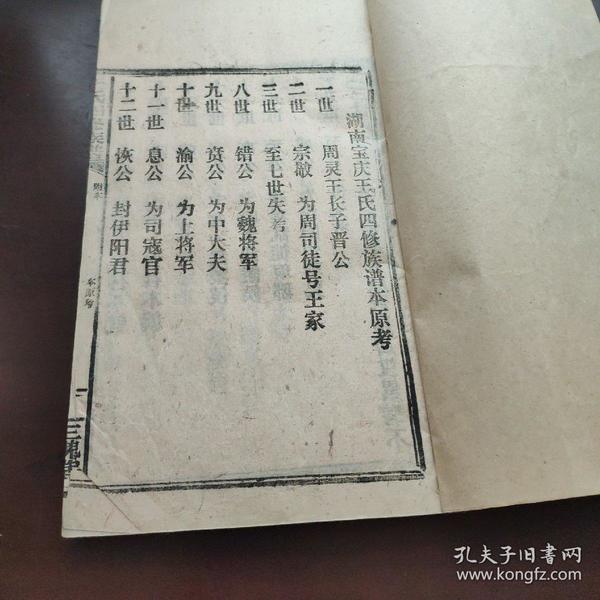 湖南宝庆王氏四修族谱本原考
一世 周灵王长子晋公
二世 宗敬 为周司徒号王家
三世 至七世失考
八世 错公 为魏将军
九世 贲公 为中大夫
十世 渝公 为上将军
十一世 息公 为司寇官
十二世 恢公 封伊阳君
本原考
三槐堂
孔夫子旧书网
www.kongfz.com